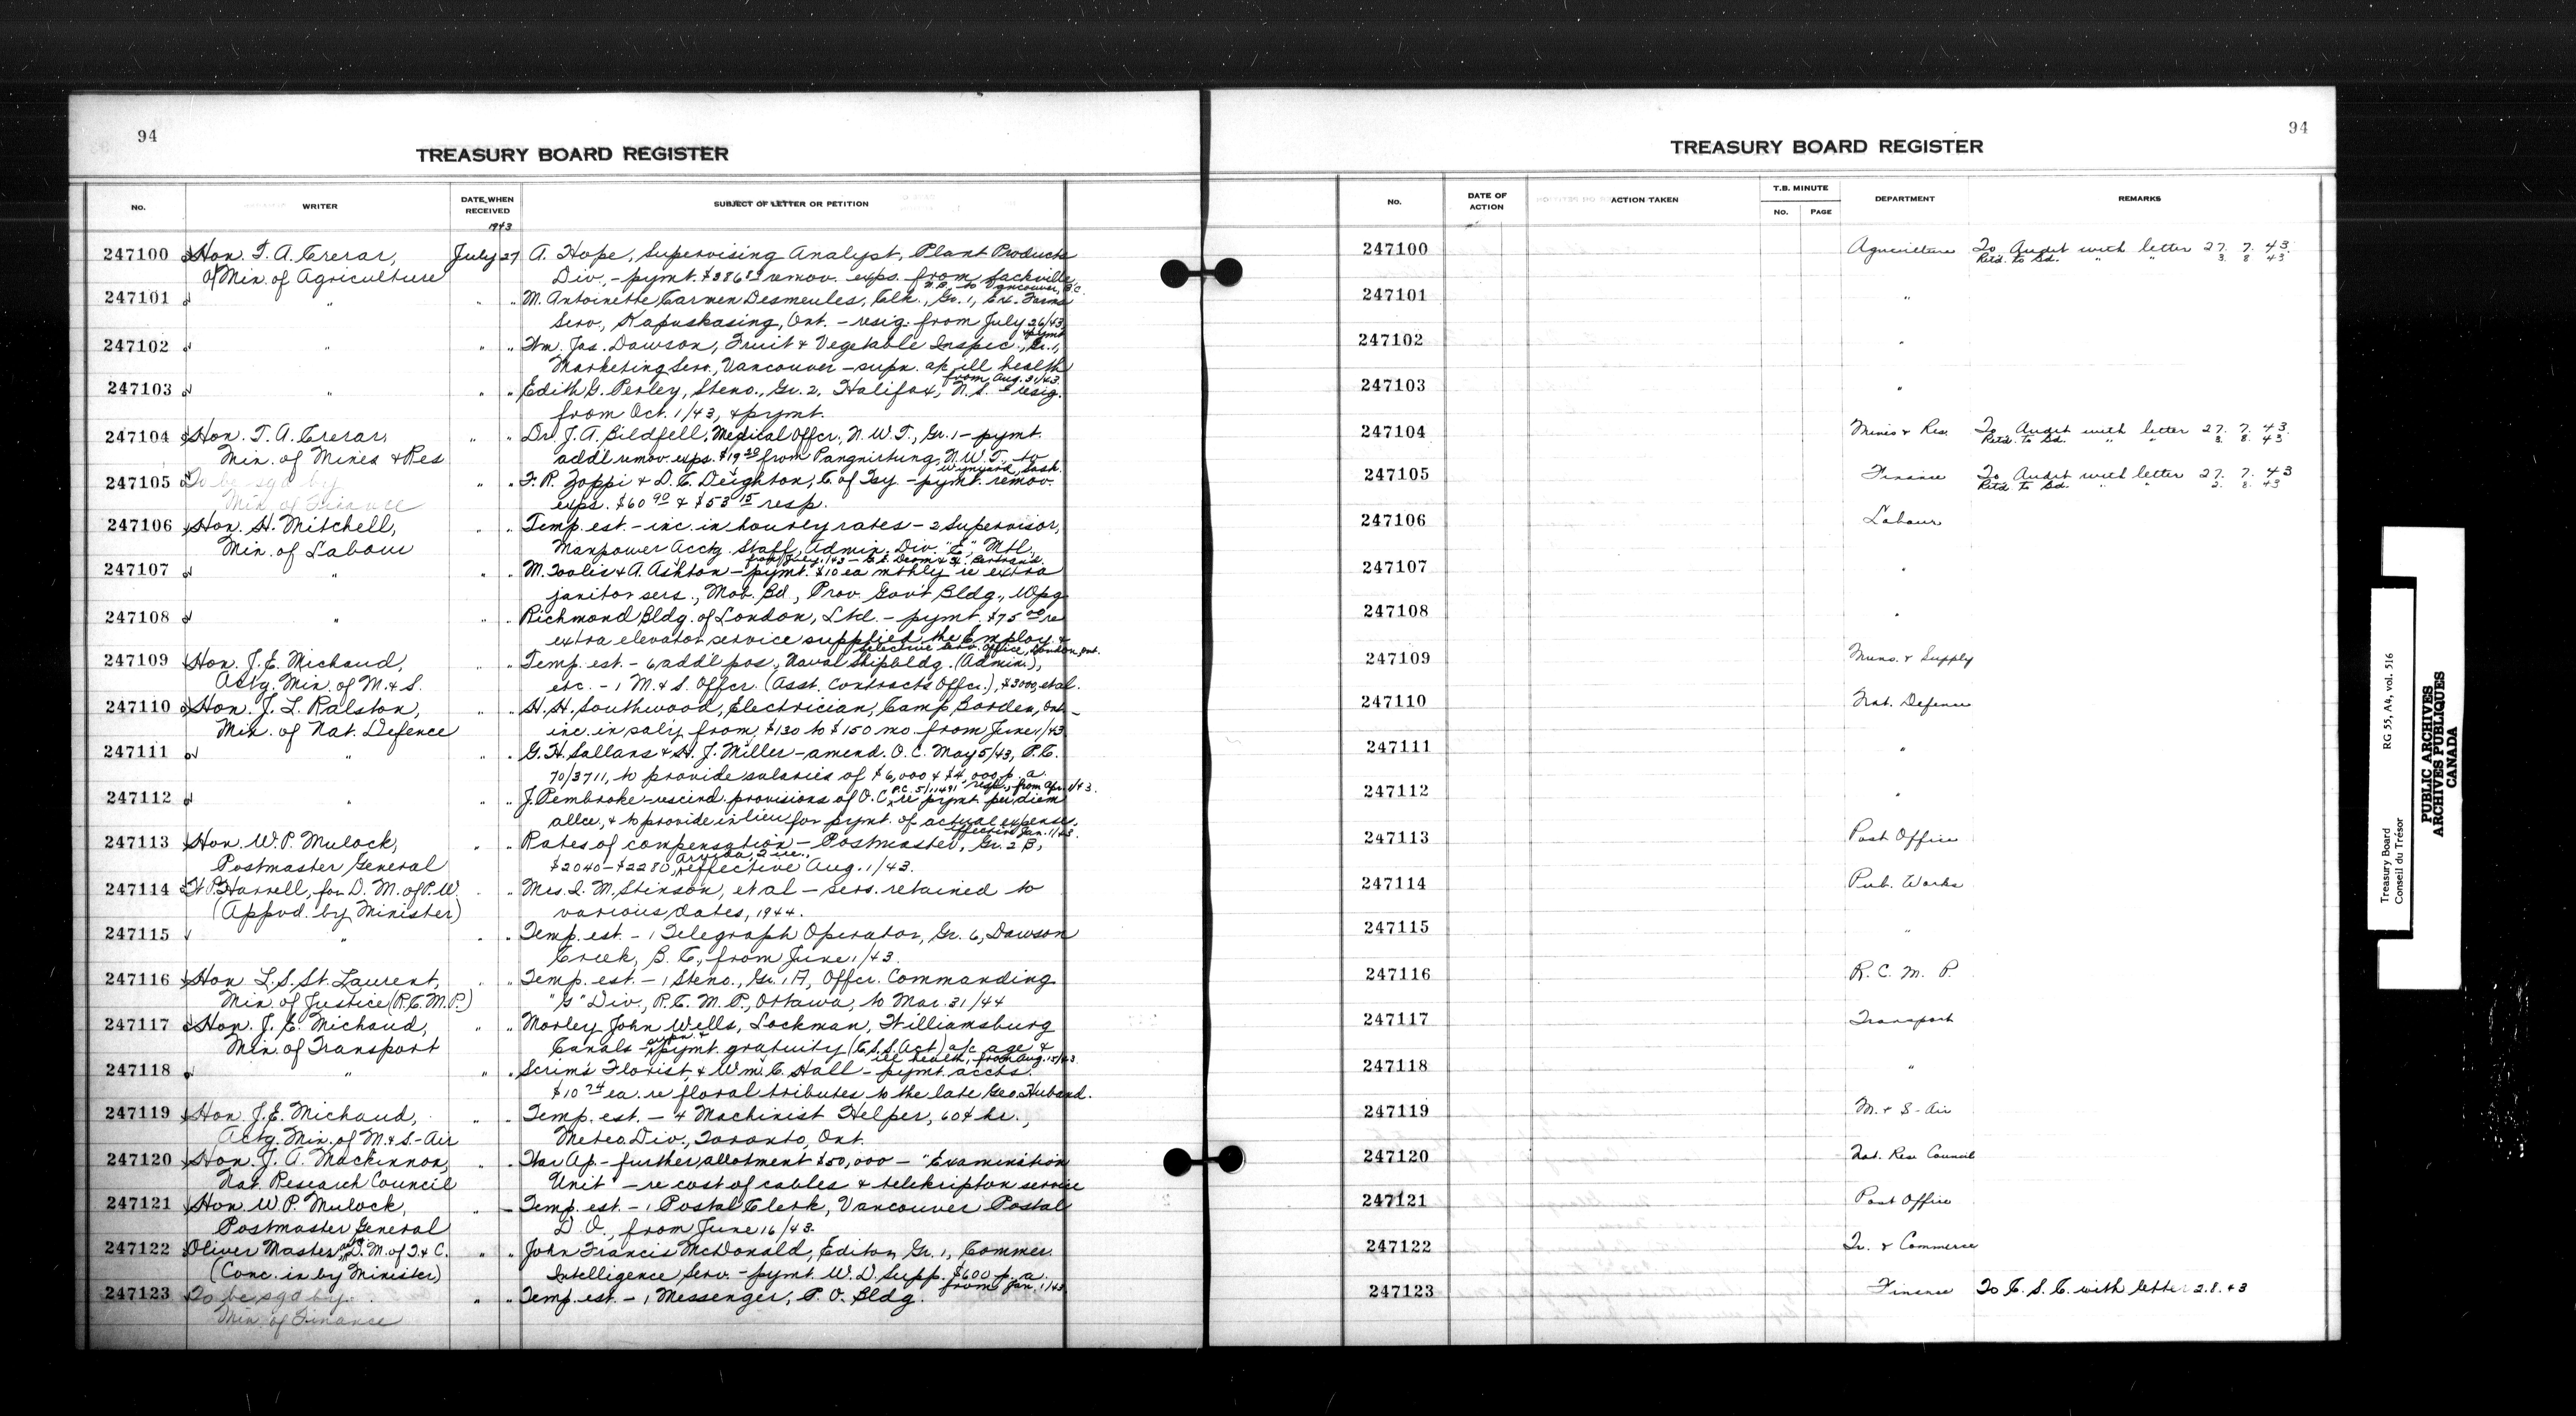 94
TREASURY BOARD REGISTER
No.
WRITER
DATE WHEN RECEIVED
SUBJECT OF LETTER OR PETITION
1943
247100 Hon. T. A. Crerar, July 27 A. Hope, Supervising Analyst, Plant Products
Min. of Agriculture Div., - pymt. $386 remov. exps. from Sackville,
N.B. to Vancouver, B.C.
247101 " " " M. Antoinette Carmen Desmeules, Clk., Gr. 1, Ex. Farms
Serv., Kapuskasing, Ont. - resig. from July 26/43,
& pymt.
247102 " " " Wm. Jas. Dawson, Fruit & Vegetable Inspec., Gr. 1,
Marketing Serv., Vancouver - supn. a/c ill health
from Aug. 31/43.
247103 " " " Edith G. Perley, Steno., Gr. 2, Halifax, N.S. - resig.
from Oct. 1/43, & pymt.
247104 Hon. T. A. Crerar, " " Dr. J. A. Bildfell, Medical Offcr., N.W.T., Gr. 1 - pymt.
Min. of Mines & Res add'l remov. exps. $19 from Pangnirtung, N.W.T., to
Wynyard, Sask.
247105 To be sgd by " " F. R. Zoppi & D. C. Deighton, C. of Tsy. - pymt. remov.
Min. of Finance exps. $60 90 & $53 15 resp.
247106 Hon. H. Mitchell, " " Temp. est. - inc. in hourly rates - 2 Supervisor,
Min. of Labour Manpower Acctg. Staff, Admin. Div. "E", Mtl.,
from July 1/43 -
247107 " " " M. Toolis & A. Ashton - pymt. $10 ea mthly re extra
janitor sers., Mob. Bd., Prov. Gov't Bldg., Wpg
247108 " " " Richmond Bldg. of London, Ltd. - pymt. $75 00 re
extra elevator service supplied the Employ. &
Selective Serv. Office, London, Ont.
247109 Hon. J. E. Michaud, " " Temp. est. - 6 add'l pos., Naval Shipbldg. (Admin.),
Actg. Min. of M. & S. etc. - 1 M. & S. Offcr. (Asst. Contracts Offcr.), $3000, et al.
247110 Hon. J. L. Ralston, " " H. H. Southwood, Electrician, Camp Borden, Ont -
Min. of Nat. Defence inc. in sal'y from $130 to $150 mo. from June 1/43
247111 " " " G. H. Sallans & H. J. Miller - amend. O. C. May 5/43, P.C.
70/3711, to provide salaries of $6,000 & $4,000 p. a.
resp., from Apr. 1/43.
247112 " " " J. Pembroke - rescind. provisions of O.C. P.C. 5/11491 re pymt. per diem
allce., & to provide in lieu for pymt. of actual expenses,
effective Jan. 1/43.
247113 Hon. W. P. Mulock, " " Rates of compensation - Postmaster, Gr. 2 B,
Arvida, Que.,
Postmaster General $2040 - $2280, effective Aug. 1/43.
247114 W. P. Harrell, for D. M. of P. W. " " Mrs. I. M. Stinson, et al - sers. retained to
(Appvd. by Minister) various dates, 1944.
247115 " " " Temp. est. - 1 Telegraph Operator, Gr. 6, Dawson
Creek, B. C., from June 1/43.
247116 Hon L. S. St. Laurent, " " Temp. est. - 1 Steno., Gr. 1A, Offcr. Commanding
Min. of Justice (R.C.M.P.) "G" Div., R.C.M.P., Ottawa, to Mar. 31/44
247117 Hon. J. E. Michaud, " " Morley John Wells, Lockman, Williamsburg
Min. of Transport Canals - pymt. gratuity (C.S.S. Act) a/c age &
ill health, from Aug. 15/43
247118 " " " Scrim's Florist, & Wm. C. Hall - pymt. accts.
$10 24 ea. re floral tributes to the late Geo. Huband.
247119 Hon J. E. Michaud, " " Temp. est. - 4 Machinist Helper, 60¢ hr.,
Actg. Min. of M. & S. - Air Meteo. Div., Toronto, Ont.
247120 Hon. J. A. Mackinnon, " " War Ap. - further allotment $50,000 - "Examination
Nat. Research Council Unit" - re cost of cables & telekripton service
247121 Hon W. P. Mulock, " " Temp. est. - 1 Postal Clerk, Vancouver Postal
Postmaster General D. O., from June 16/43.
247122 Oliver Master, D. M. of T. & C. " " John Francis McDonald, Editor, Gr. 1, Commer.
(Conc. in by Minister) Intelligence Serv. - pymt. W. D. Supp. $600 p. a.
from Jan. 1/43
247123 To be sgd by " " Temp. est. - 1 Messenger, P. O. Bldg.
Min. of Finance
94
TREASURY BOARD REGISTER
No.
DATE OF ACTION
ACTION TAKEN
T.B. MINUTE
No. PAGE
DEPARTMENT
REMARKS
247100 Agriculture To Audit with letter 27. 7. 43.
Ret'd. to Bd. " " 3. 8. 43
247101 "
247102 "
247103 "
247104 Mines & Res. To Audit with letter 27. 7. 43.
Ret'd. to Bd. " " 3. 8. 43
247105 Finance To Audit with letter 27. 7. 43
Ret'd. to Bd. " " 8. 43
247106 Labour
247107 "
247108 "
247109 Muns. & Supply
247110 Nat. Defence
247111 "
247112 "
247113 Post Office
247114 Pub. Works
247115 "
247116 R. C. M. P.
247117 Transport
247118 "
247119 M. & S - Air
247120 Nat. Res. Council
247121 Post Office
247122 Tr. & Commerce
247123 Finance To C. S. C. with letter 2.8.43
Treasury Board RG 55, A4, vol. 516
Conseil du Trésor
PUBLIC ARCHIVES
ARCHIVES PUBLIQUES
CANADA